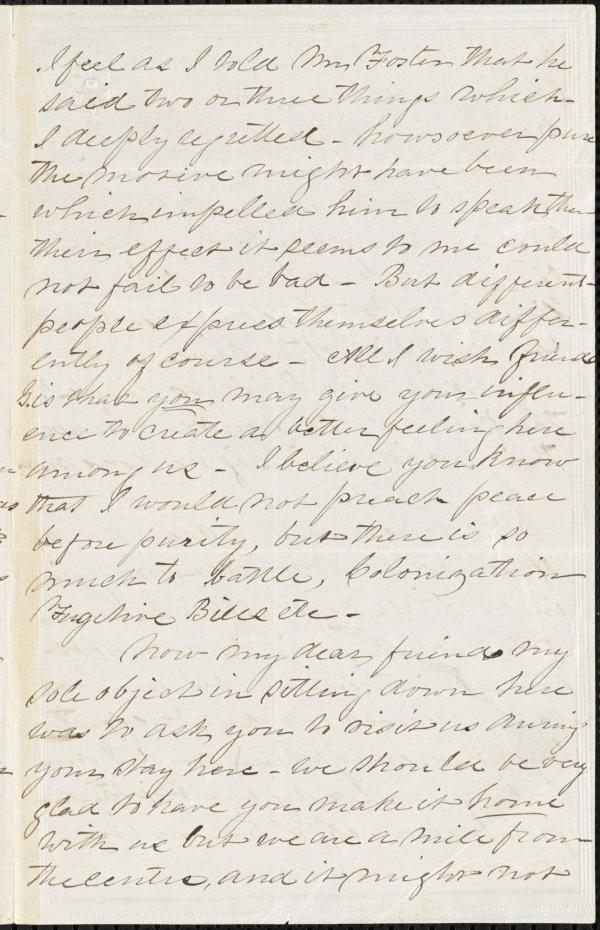 I feel as I told Mr Foster that he
said two or three things which
I deeply regretted - howsoever pure
the motive might have been
which impelled him to speak them
their effect it seems to me could
not fail to be bad - But different
people express themselves differ-
ently of course - All I wish friend
G. is that you may give your influ-
ence to create a better feeling here
among us - I believe you know
that I would not preach peace
before purity, but there is so
much to battle, Colonization
Fugitive Bills etc -
Now my dear friend my
sole object in sitting down here
was to ask you to visit us during
your stay here - we should be very
glad to have you make it home
with us but we are a mile from
the centre, and it might not